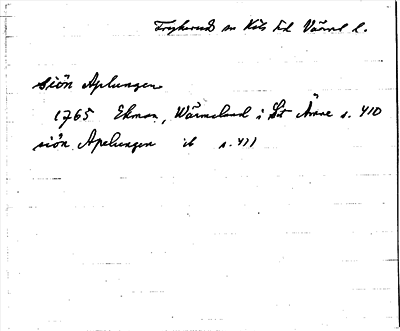 Trykerud sn Kils hd Värml l.
siön Aplungen
1765 Ekman, Wärmeland i Sitt Ämne s. 410
siön Apelungen ib s. 411